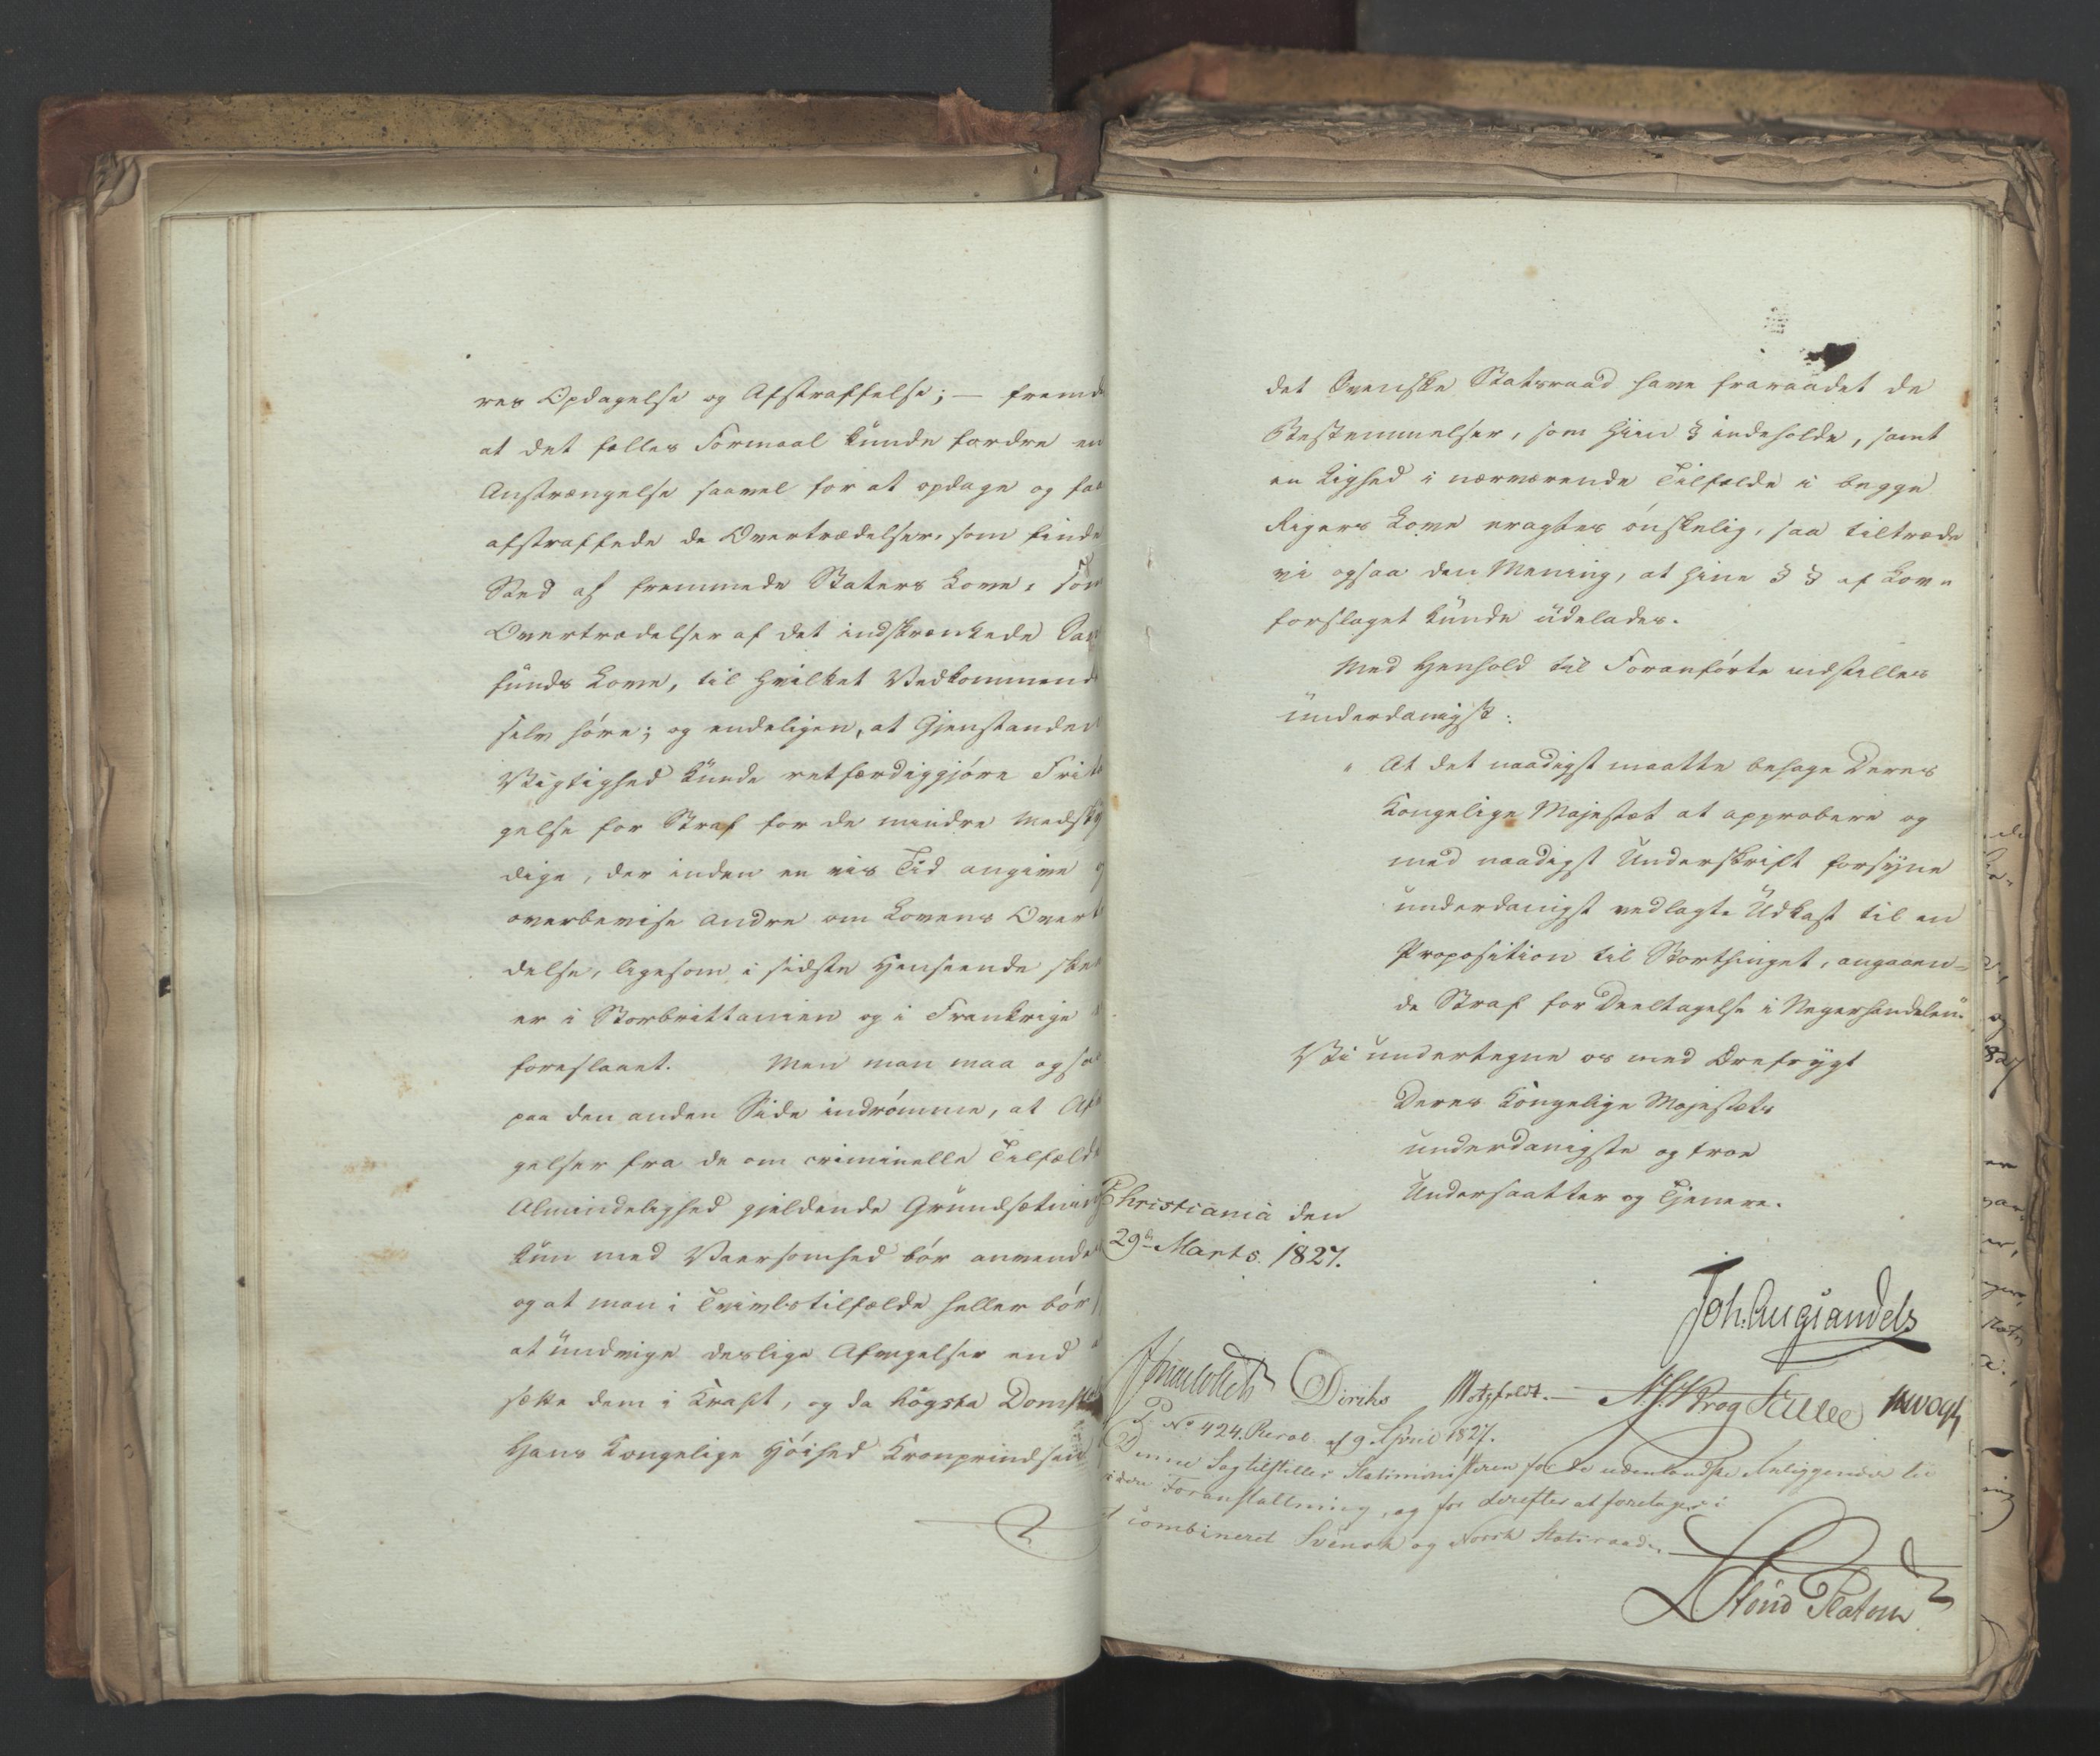 res Opdagelse og Afstraffelse; — fremde
at det fælles Formaal kunde fordre en
Anstrængelse saavel for at opdage og faae
afstraffede de Overtrædelser, som finde
Sted af fremmede Staters Love, som
Overtrædelser af det indskrænkede Sam
funds Love, til hvilket Vedkommende
selv høre; og endeligen, at Gjenstanden
Vigtighed kunde retfærdiggjøre Frita
gelse for Straf for de mindre medsky
dige, der inden en vis Tid angive og
overbevise andre om Lovens Overt
delse, ligesom i sidste Henseende skee
er i Storbrittanien og i Frankrige
foreslaaet. Men man maa ogsaa
paa den anden Side indrømme, at Af
gelser fra de om criminelle Tilfælde
Almindelighed gjeldende Grundsætning
kun med Varsomhed bør anvendes
og at man i Tvivlstilfælde heller bør
at undvige deslige Afvigelser end
sætte dem i Kraft, og da högsta Domst
Hans Kongelige Høihed Kronprindsen
det Svenske Statsraad have fraraadet de
Bestemmelser, som hiin § indeholde, samt
en Lighed i nærværende Tilfælde i begge
Rigers Love eragtes ønskelig, saa tiltræde
vi ogsaa den Mening, at hine § § af Lov-
forslaget kunde udelades.
Med Henhold til Foranførte indstilles
underdanigst:
" At det naadigst maatte behage Deres
Kongelige Majestæt at approbere og
med naadigst Underskrift forsyne
underdanigst vedlagte Udkast til en
Proposition til Storthinget, angaaen-
de Straf for Deeltagelse i Negerhandelen."
Vi undertegne os med Ærefrygt
Deres Kongelige Majestæts
underdanigste og troe
Undersaatter og Tjenere.
Christiania den
29de Marts. 1827.
Joh. Aug Sandels
J Collett Diriks Motzfeldt. A. S. Krog Fasting JHVogt
P. No 424. Resol. af 9 April 1827.
Denne Sag tilstilles Statsministeren for de udenlandske Anliggender til
videre Foranstaltning, og for derefter at foretages i
et combineret Svensk og Norsk Statsraad.
Platou